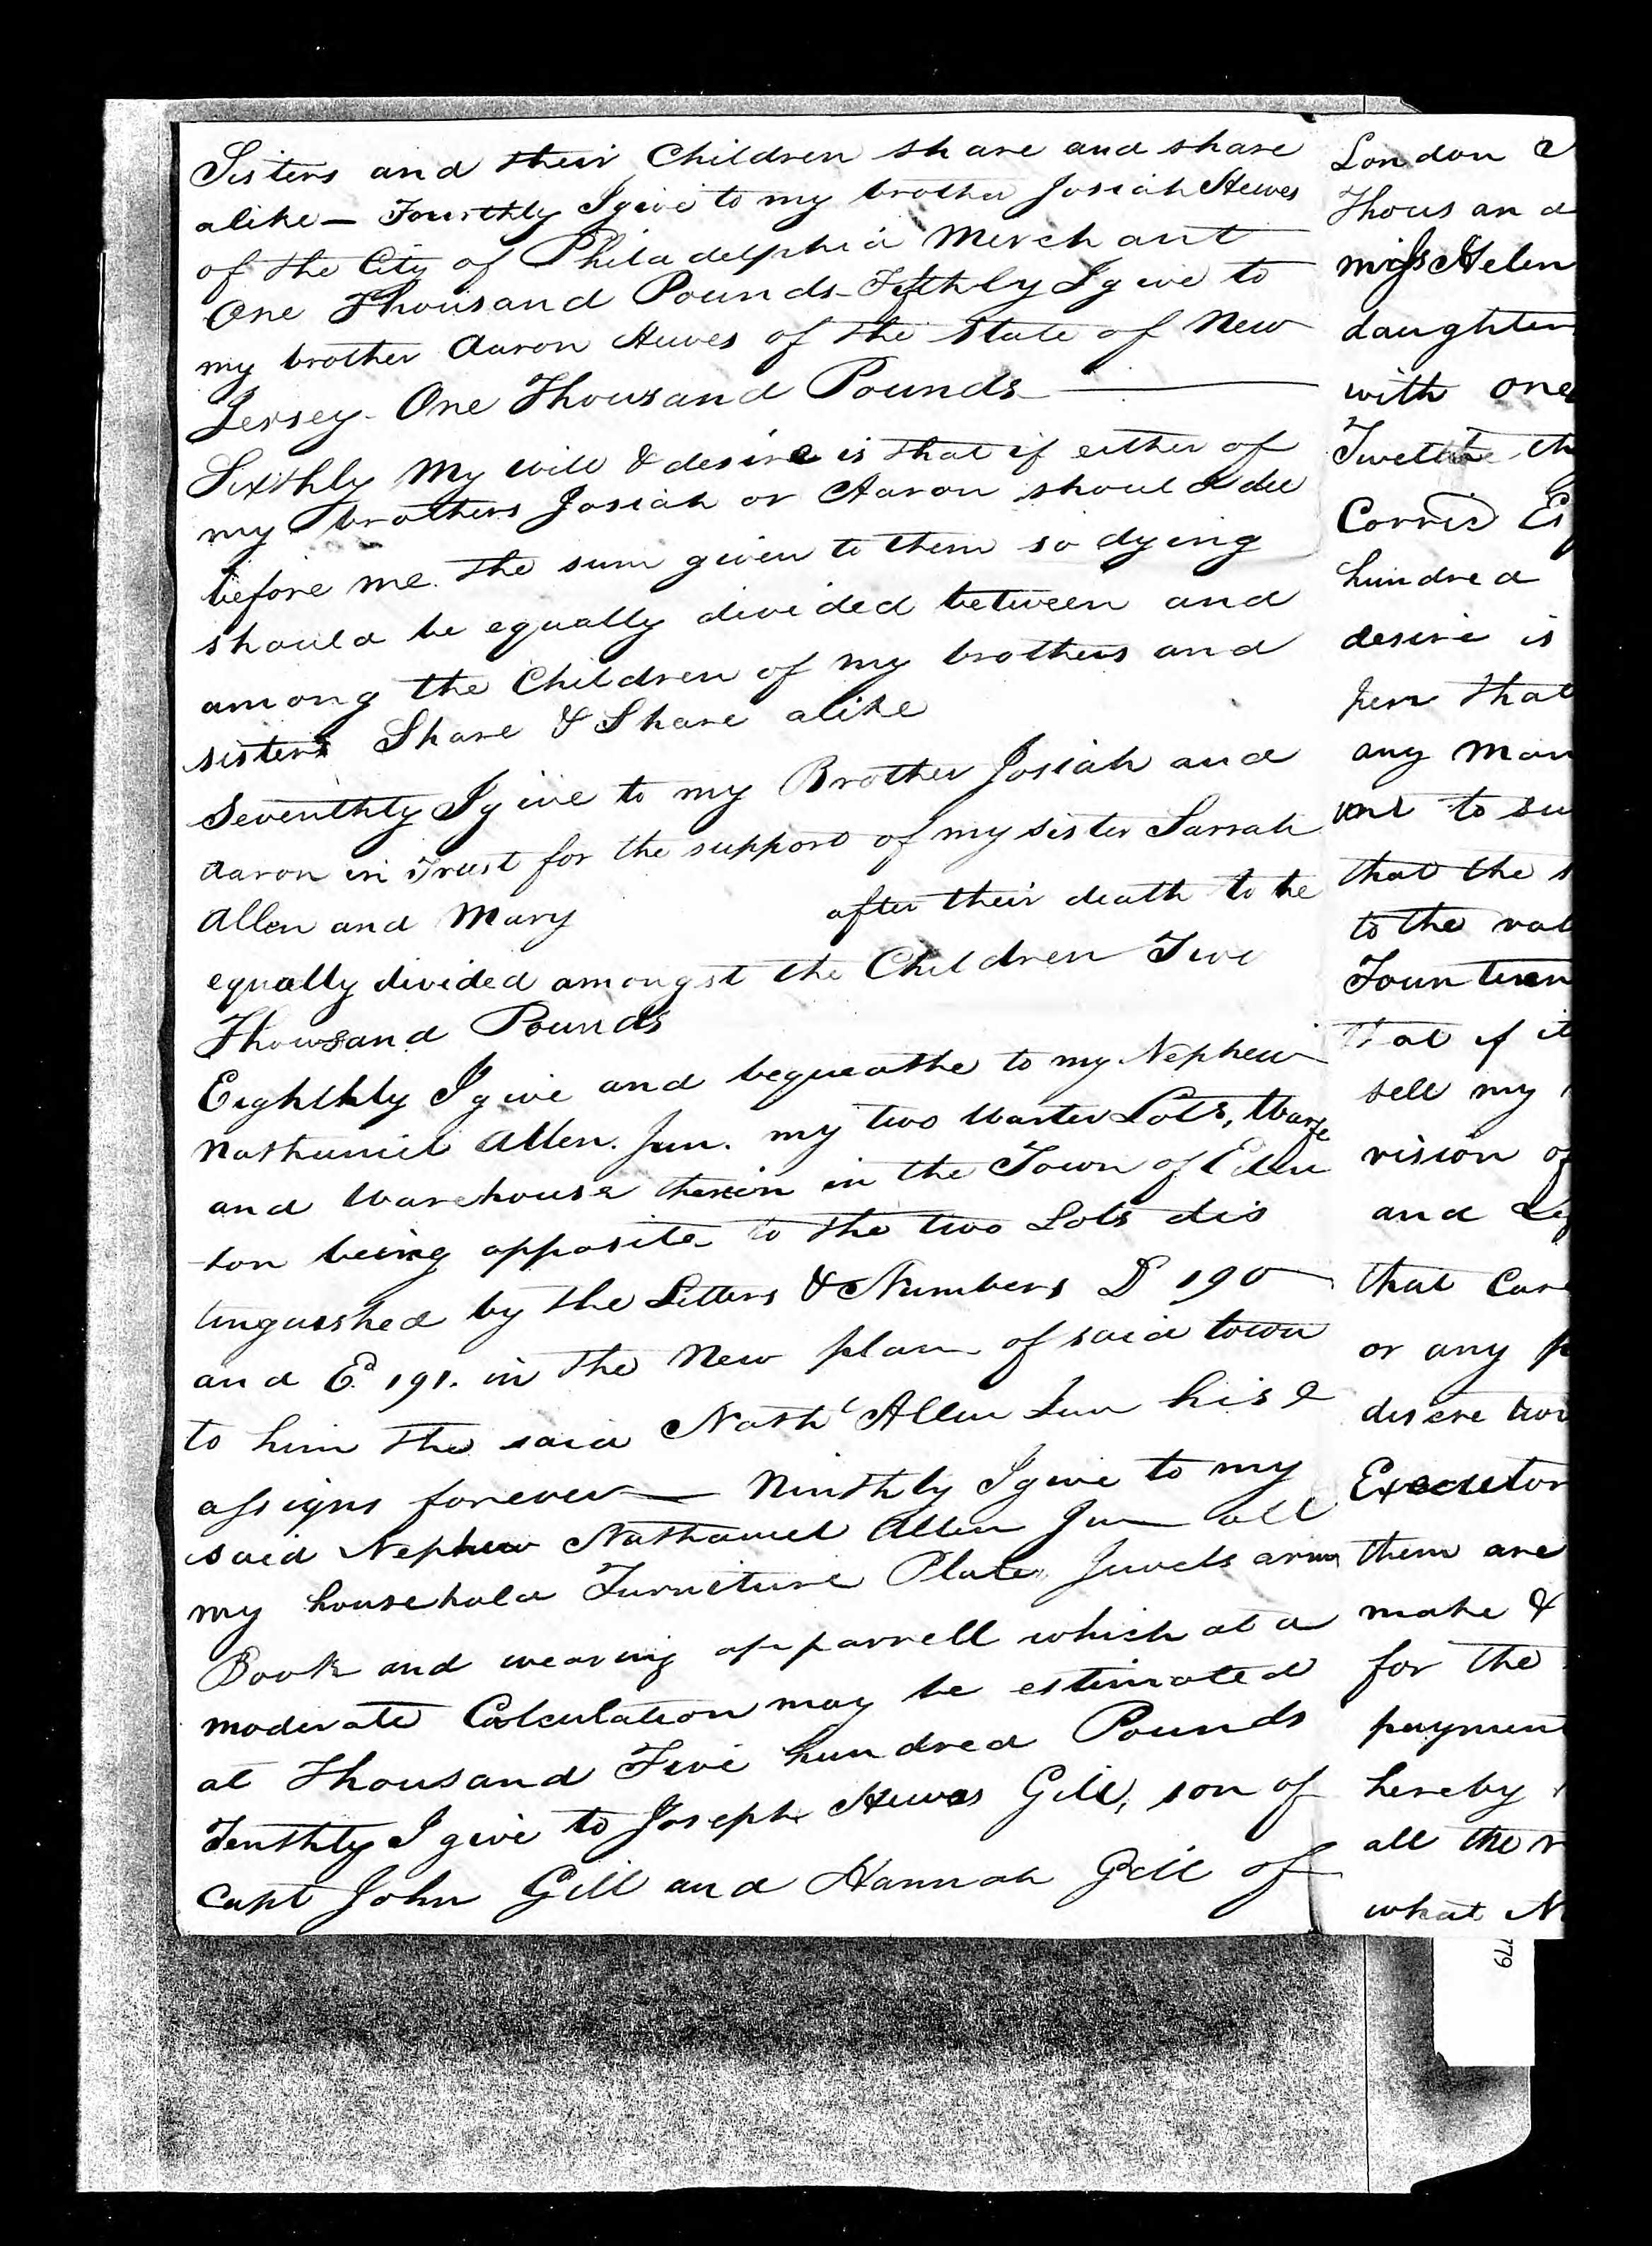 Sisters and their Children share and share
alike — Fourthly I give to my brother Josiah Hewes
of the City of Philadelphia Merchant
One Thousand Pounds - Fifthly I give to
my brother Aaron Hewes of the State of New
Jersey - One Thousand Pounds
Sixthly My will & desire is that if either of
my brothers Josiah or Aaron should die
before me. the sum given to them so dying
should be equally divided between and
among the Children of my brothers and
sisters Share & Share alike
Seventhly I give to my Brother Josiah and
Aaron in Trust for the support of my sister Sarrah
Allen and Mary after their death to be
equally divided amongst the Children Two
Thousand Pounds
Eighthly I give and bequeathe to my Nephew
Nathaniel Allen. Jun. my two Warter Lots, Warfe
and Warehouse therein in the Town of Eden
ton being opposite to the two Lots dis
tinguished by the Letters & Numbers D 190
and E. 191. in the New plan of said town
to him the said Nathl Allen Jun his &
assigns forever — Ninthly I give to my
said Nephew Nathaniel Allen Jun all
my household Furniture Plate, Jewels arms
Book and wearing apparrell which at a
moderate Calculation may be estimated
at Thousand Five hundred Pounds
Tenthly I give to Joseph Hewes Gill, son of
Capt John Gill and Hannah Gill of
London
Thousand
miss Helen
daughter
with one
Twelthe
Corrie
hundred
desire is
pen that
any man
to su
that the s
to the val
Fourteen
that if it
sell my
vision of
and
that Car
or any p
discre
Executor
them are
make &
for the
payment
hereby
all the r
what N
79